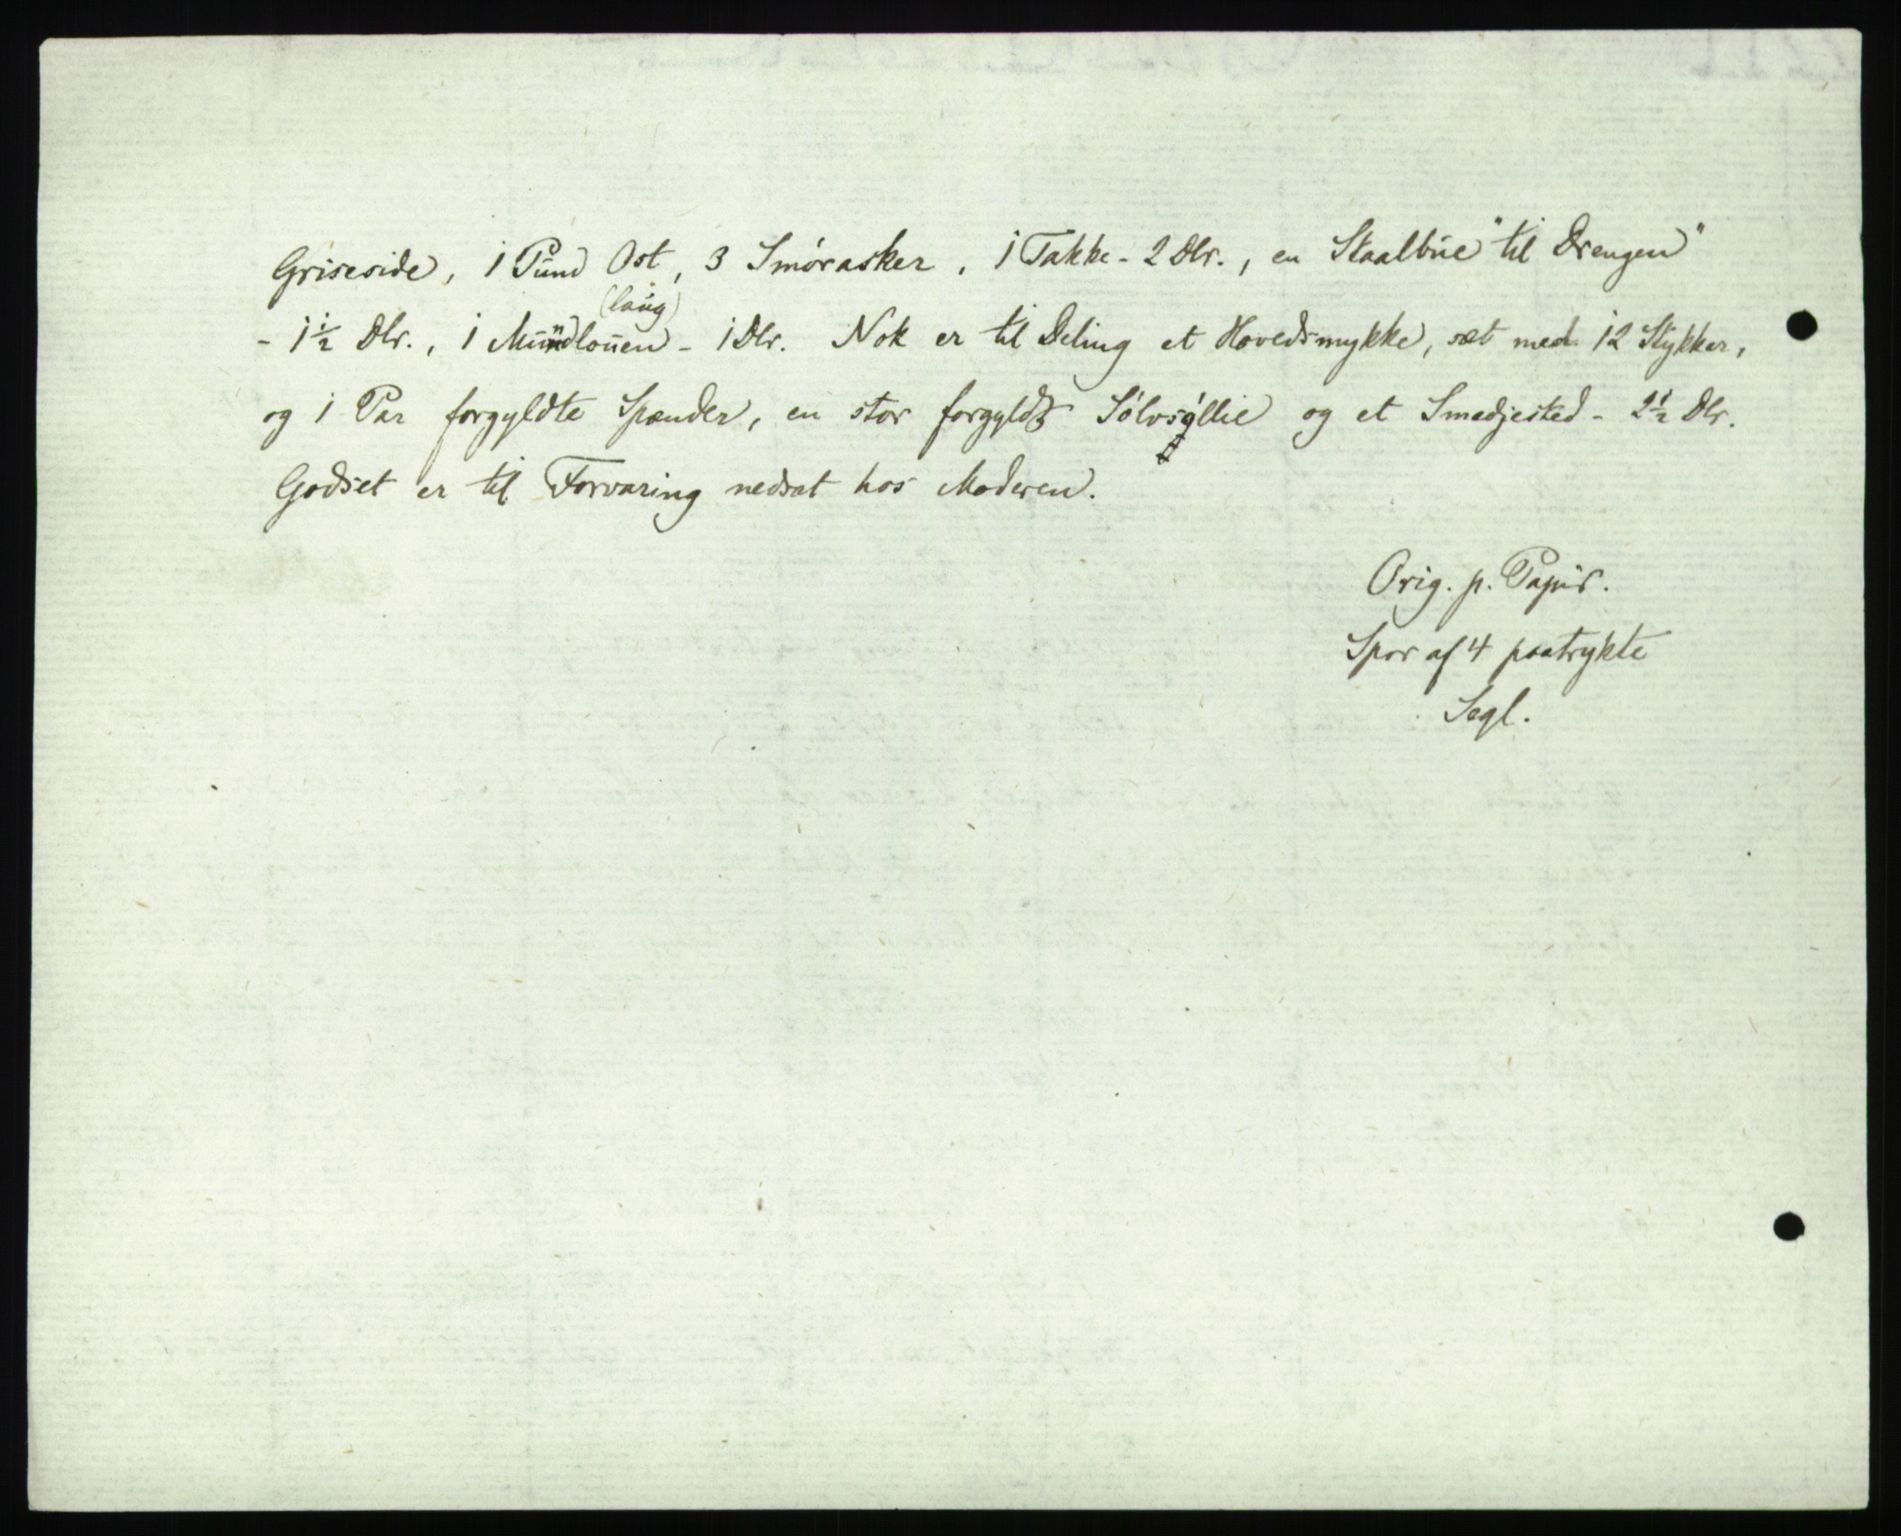 Griseside, 1 Pund Ost, 3 Smørasker, 1 Takke - 2 Dlr., en Staalbue "til Drengen"
(laug)
- 1½ Dlr., 1 Mundlouen - 1 Dlr. Nok er til Deling et Hovedsmykke, sæt med 12 Stykker,
og 1 Par forgyldte Spænder, en stor forgyldt Sølvsyllie og et Smedjested - 2½ Dlr.
Godset er til Forvaring nedsat hos Moderen.
Orig. p. Papir.
Spor af 4 paatrykte
Segl.